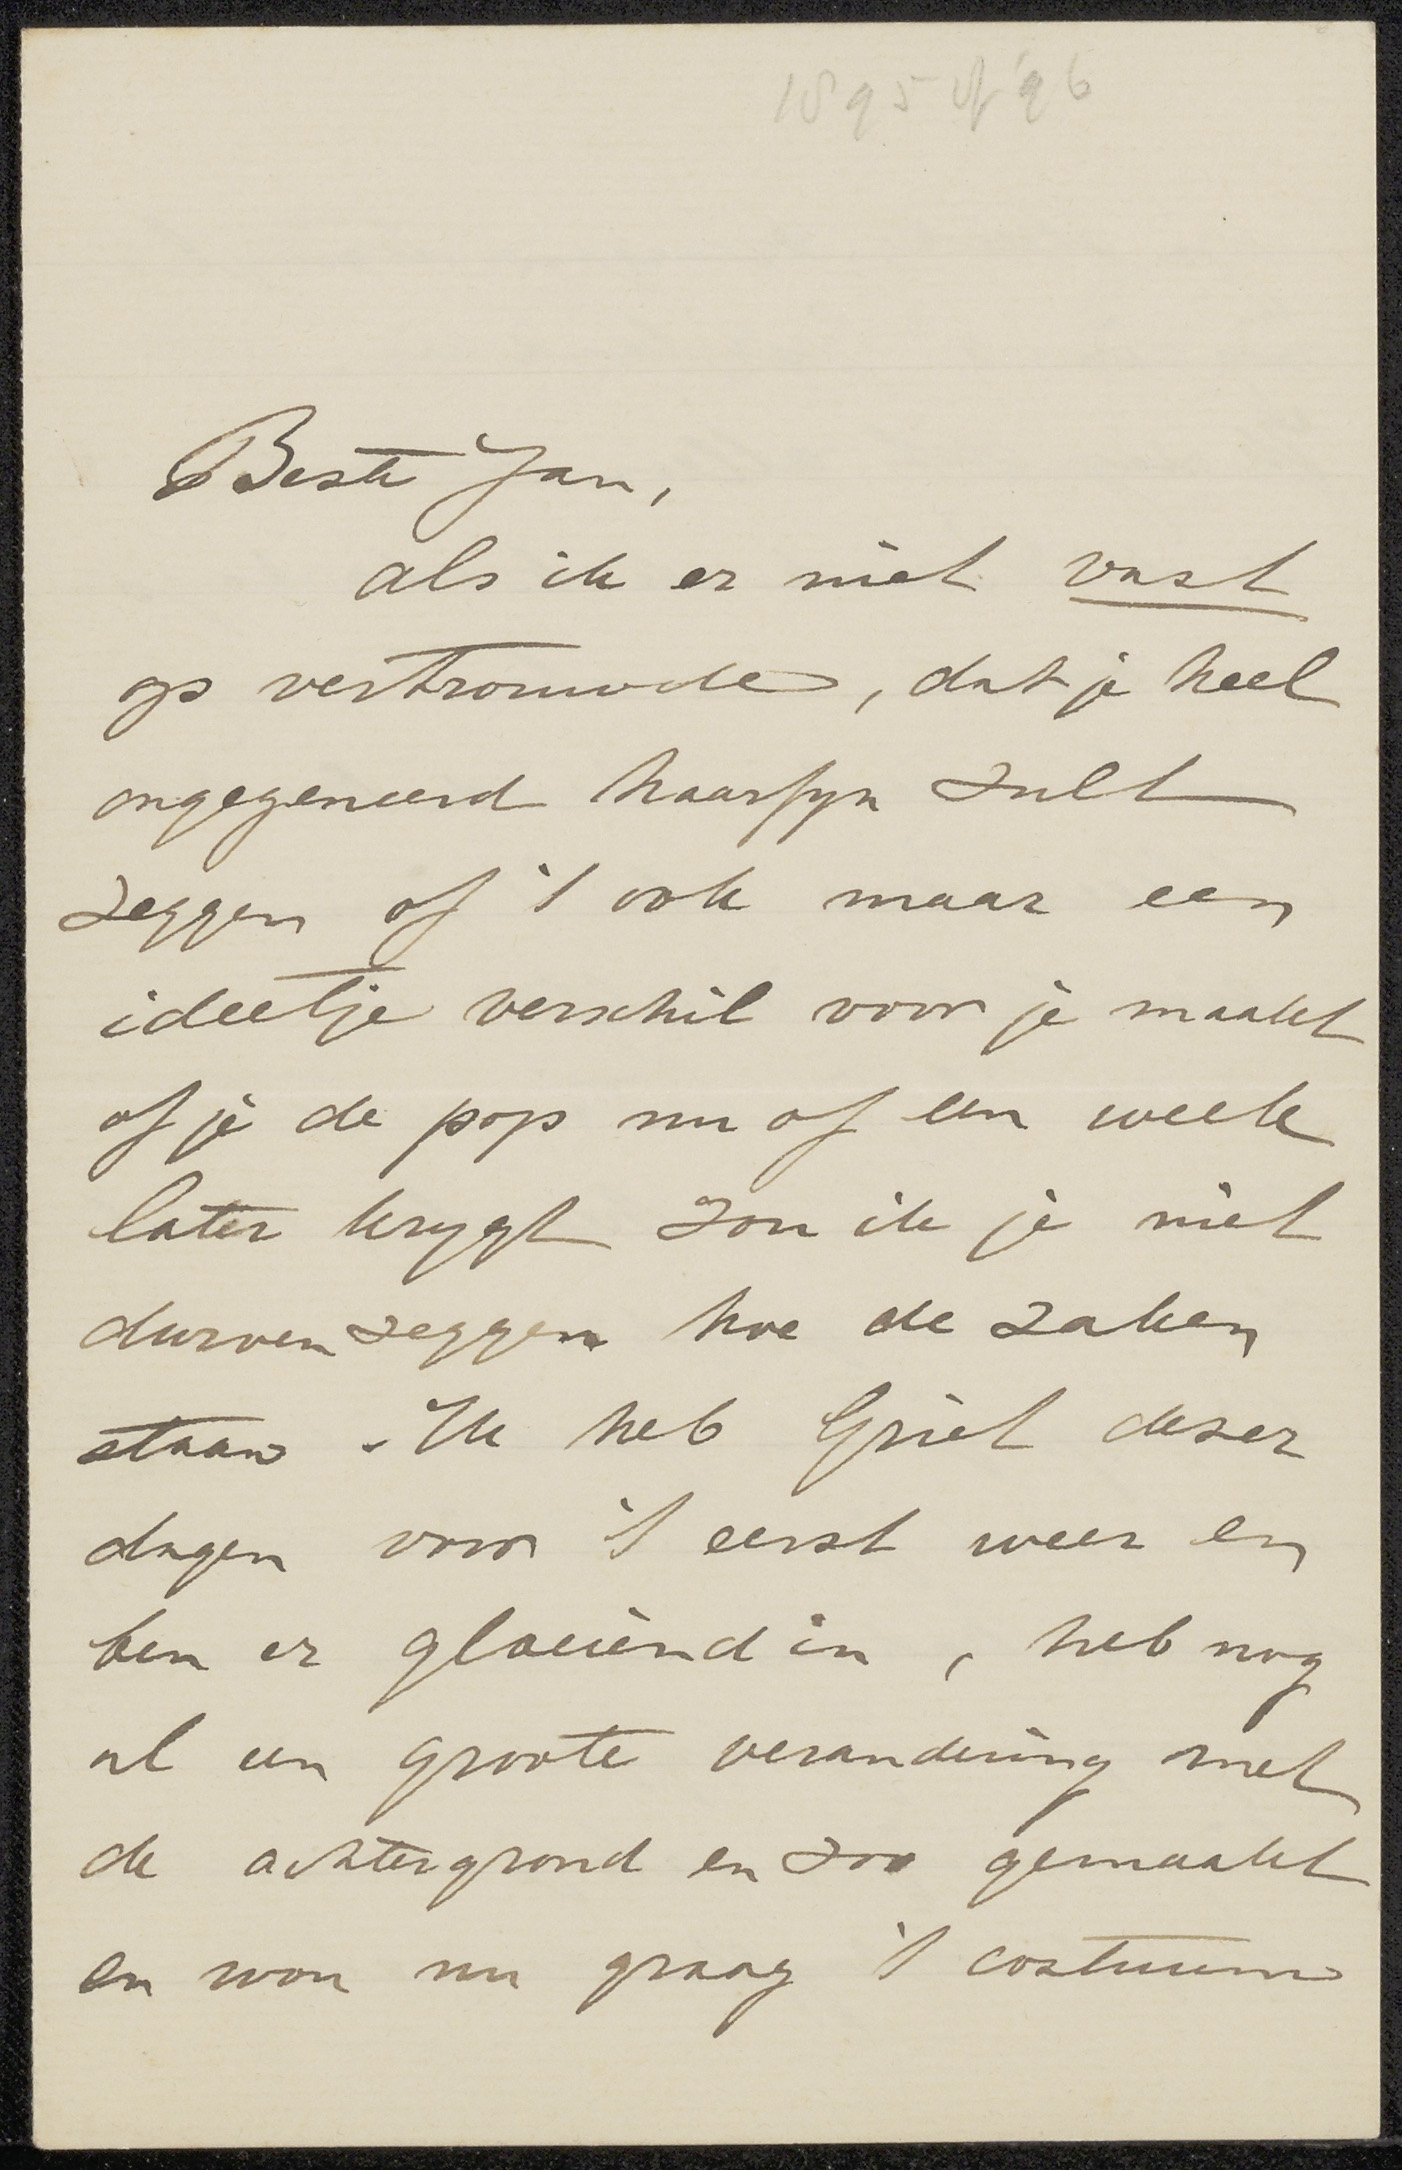 1895 of '96
Beste Jan,
als ik er niet vast
op vertrouwde, dat je heel
ongegeneerd haarfyn zult
zeggen of 't ook maar een
ideetje verschil voor je maakt
of je de pop nu of een week
later krygt zou ik je niet
durven zeggen hoe de zaken
staan. Ik heb Griet dezer
dagen voor 't eerst weer en
ben er gloeiënd in, heb nog
al een groote verandering met
de achtergrond en zoo gemaakt
en wou nu graag 't costuum